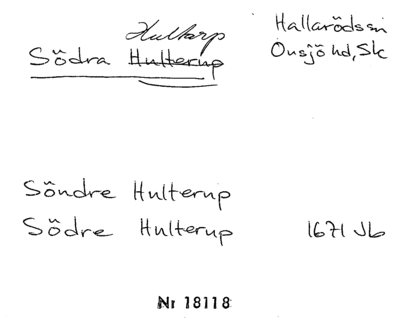 Hultarp
Södra Hulterup
Hallarödssn
Onsjö hd, Sk
Söndre Hulterup
Södre Hulterup 1671 Jb
Nr 18118